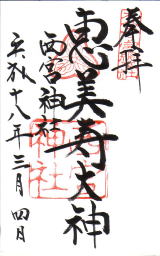 奉拝
恵美寿大神
西宮神社
平成十八年三月四日